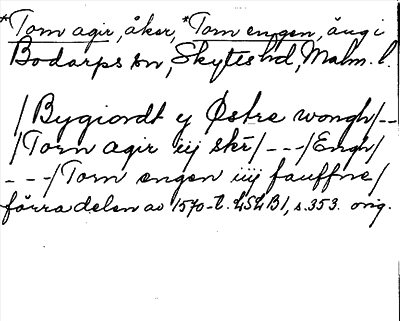 *Torn agir, åker, *Torn engen, äng i
Bodarps sn, Skytts hd, Malm. l.
/Bygiordt ej Østre wongh/--
/Torn agir iij skr/---/Engh/
---/Torn engen iiij fauffne/
förra delen av 1570-t. LSLB1, s.353. orig.